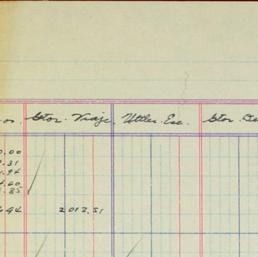 os. Gtos. Viaje. Utiles. Esc. Gtos. De
0.00
.31
.94
.60
.85
.94 2013.51